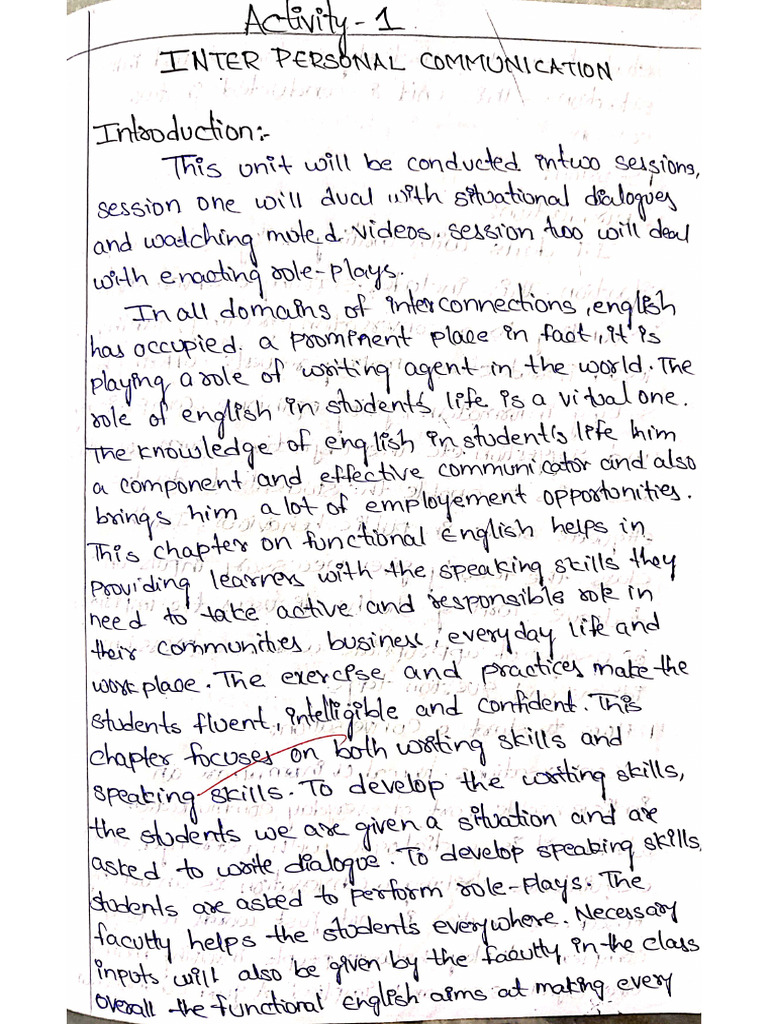 Activity-1
INTER PERSONAL COMMUNICATION
Introduction:-
This unit will be conducted intwo sessions,
session one will dual with situational dialogues
and watching muted videos. session two will deal
with enacting role-plays.
In all domains of interconnections, english
has occupied a prominent place in fact, it is
playing a role of writing agent in the world. The
role of english in students' life is a vitual one.
The knowledge of english in student's life him
a component and effective communicator and also
brings him a lot of employement opportunities.
This chapter on functional English helps in
providing learners with the speaking skills they
need to take active and responsible role in
their communities, business, everyday life and
workplace. The exercise and practices make the
students fluent, intelligible and confident. This
chapter focuses on both writing skills and
speaking skills. To develop the writing skills,
the students we are given a situation and are
asked to write dialogue. To develop speaking skills,
students are asked to perform role-plays. The
facutty helps the students everywhere. Necessary
inputs will also be given by the facutty in the class
overall the functional English aims at making every